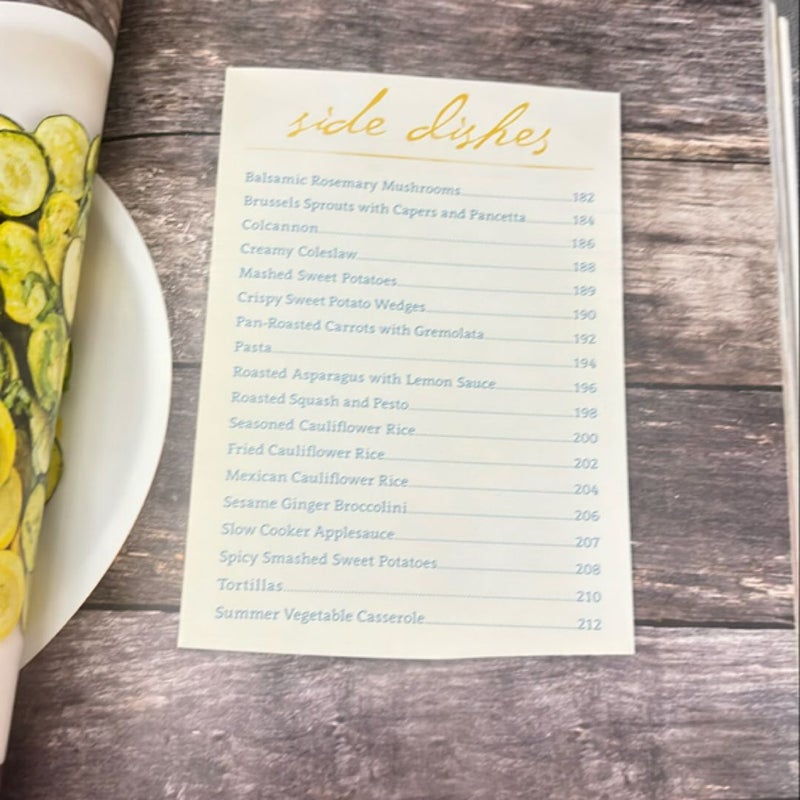 side dishes
Balsamic Rosemary Mushrooms 182
Brussels Sprouts with Capers and Pancetta 184
Colcannon 186
Creamy Coleslaw 188
Mashed Sweet Potatoes 189
Crispy Sweet Potato Wedges 190
Pan-Roasted Carrots with Gremolata 192
Pasta 194
Roasted Asparagus with Lemon Sauce 196
Roasted Squash and Pesto 198
Seasoned Cauliflower Rice 200
Fried Cauliflower Rice 202
Mexican Cauliflower Rice 204
Sesame Ginger Broccolini 206
Slow Cooker Applesauce 207
Spicy Smashed Sweet Potatoes 208
Tortillas 210
Summer Vegetable Casserole 212